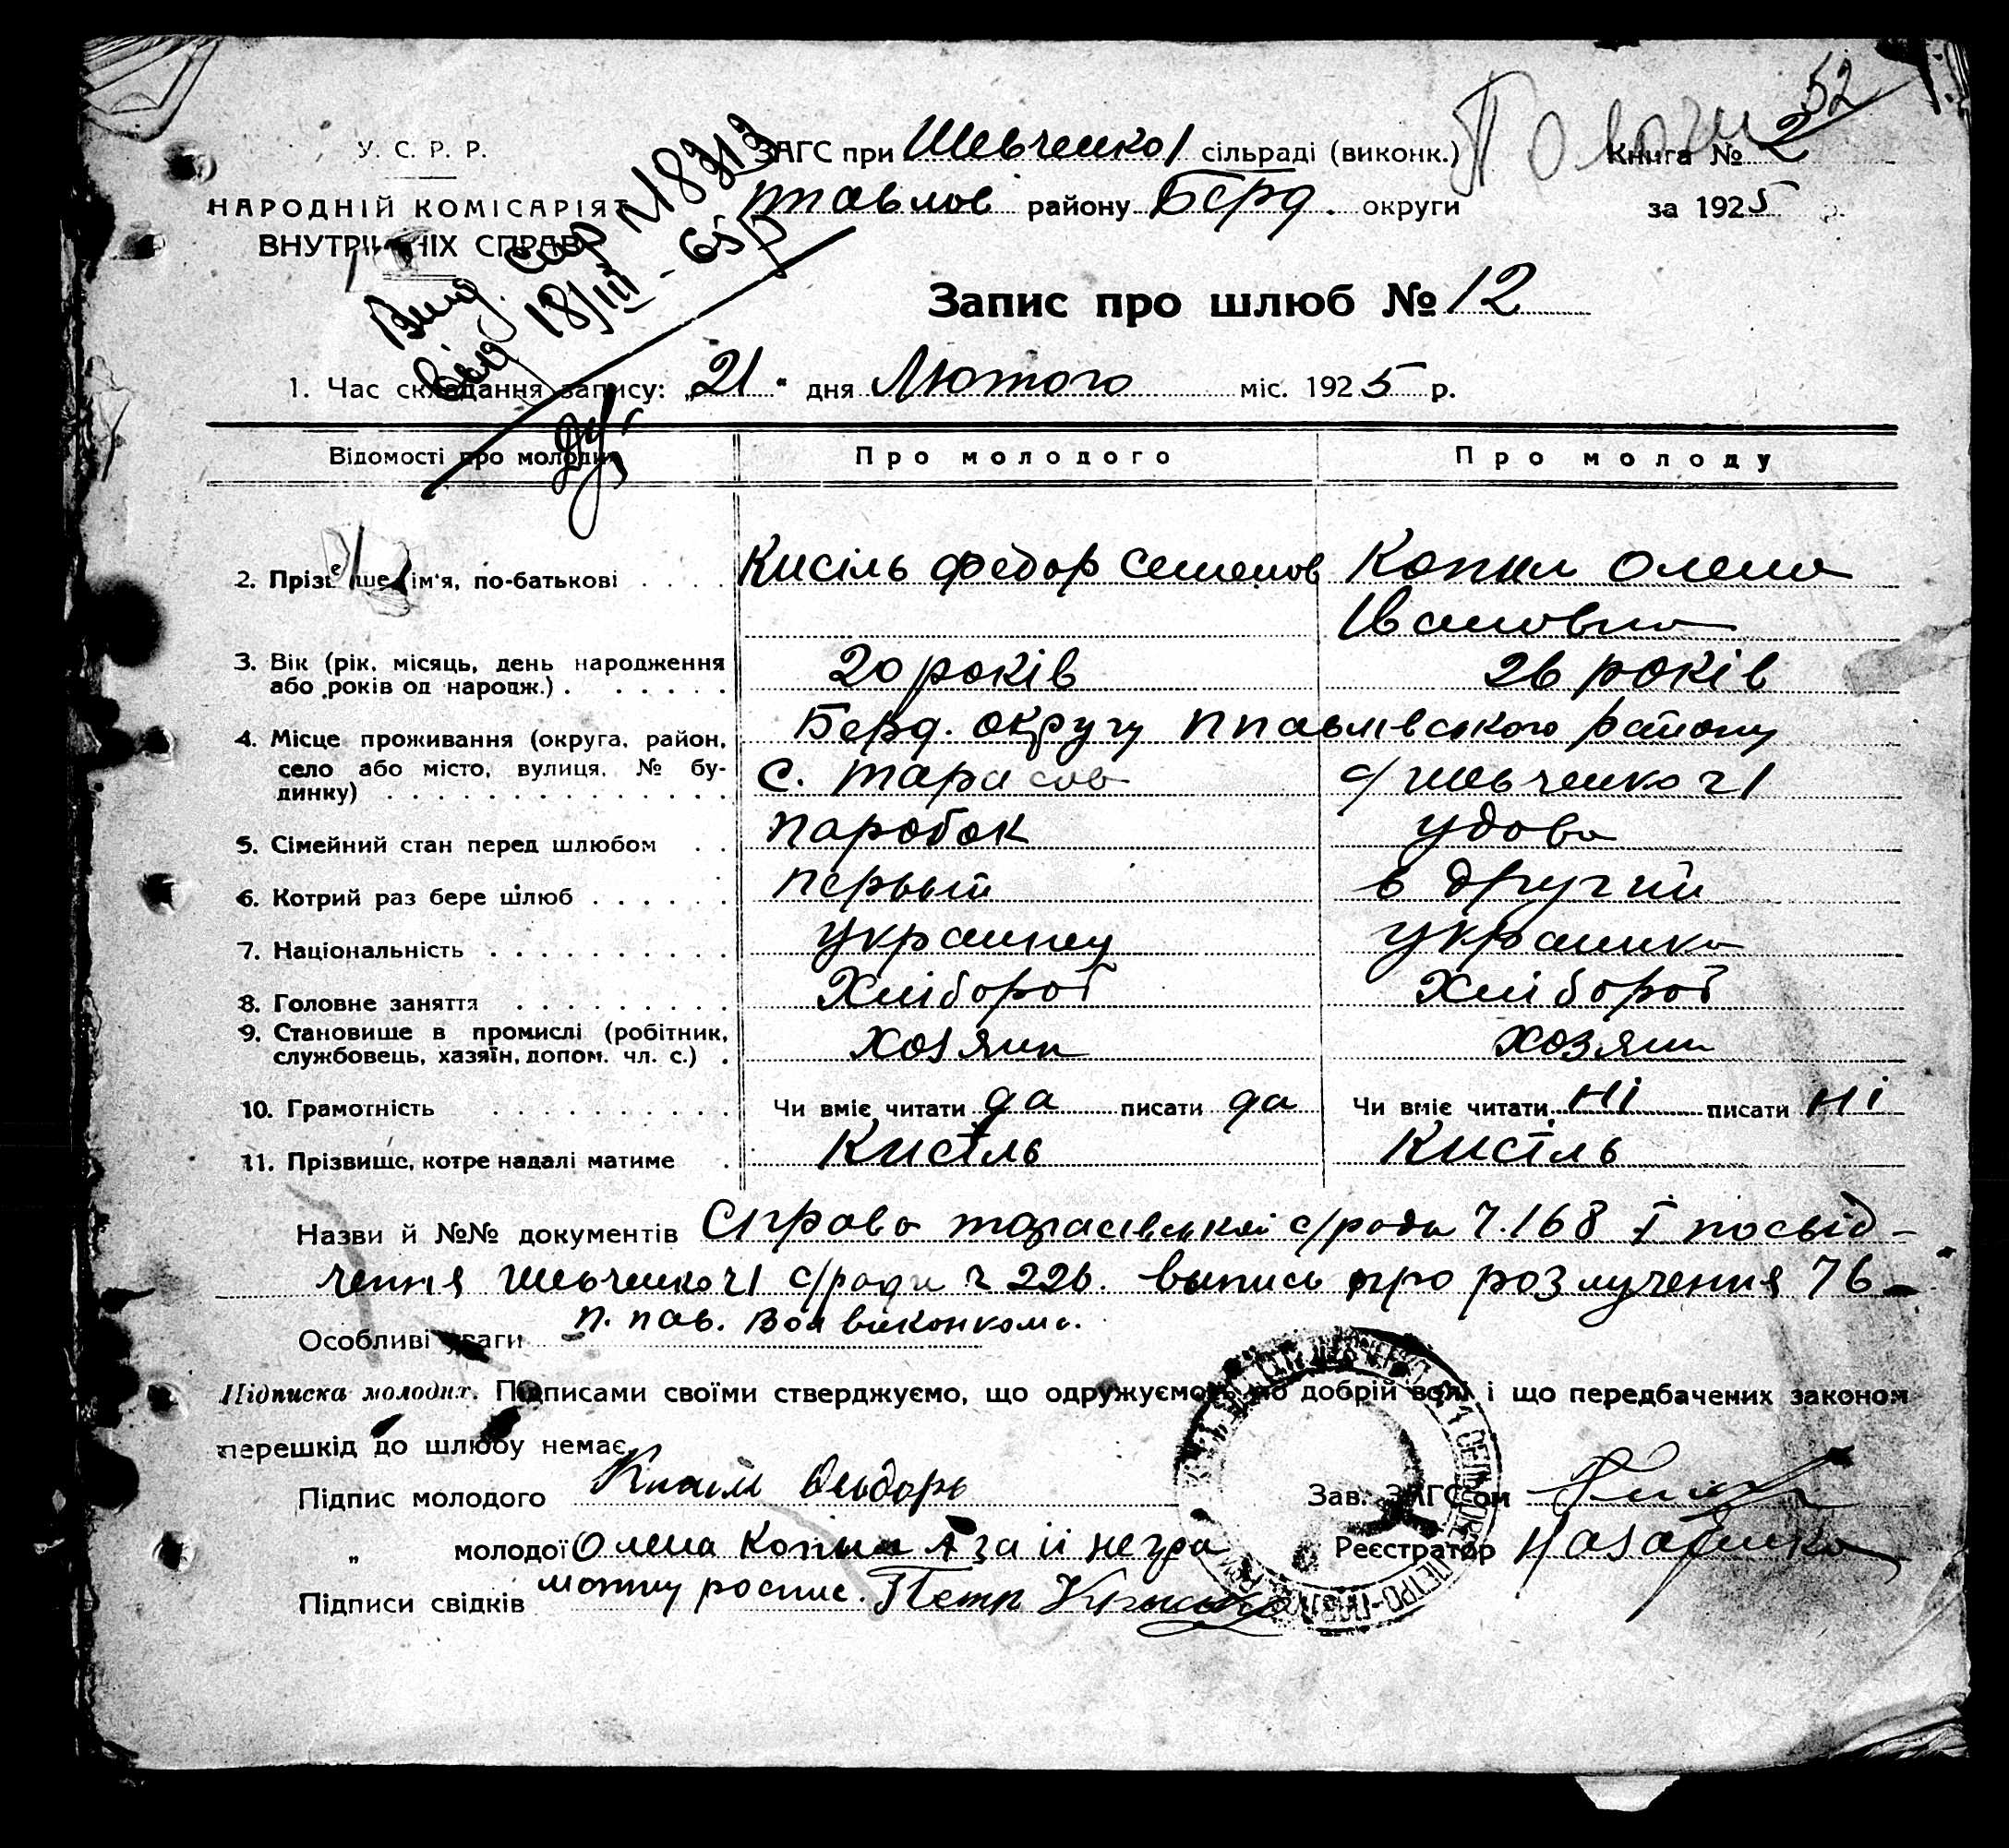 52
У. С. Р. Р.
НАРОДНІЙ КОМІСАРІЯТ
ВНУТРІШНІХ СПРАВ
ЗАГС при Шевченко 1 сільраді (виконк.)
Книга № 2
ппавлов району Берд. округи
за 1925 р.
18313
від 18/III - 65 р
Запис про шлюб № 12
1. Час складання запису: „21“ дня Лютого міс. 1925 р.
Відомості про молодих
Про молодого
Про молоду
2. Прізвище, ім'я, по-батькові
Кисіль Федор Семенов
Копил Олена
Івановна
3. Вік (рік, місяць, день народження
або років од народж.)
20 років
26 років
4. Місце проживання (округа, район,
село або місто, вулиця, № бу-
динку)
Берд. округу ппавлівського району
с. Тарасов
с/ Шевченко ч 1
5. Сімейний стан перед шлюбом
паробок
удова
6. Котрий раз бере шлюб
первый
в другий
7. Національність
украинец
украинка
8. Головне заняття
Хлібороб
Хлібороб
9. Становище в промислі (робітник,
службовець, хазяїн, допом. чл. с.)
хозяин
хозяин
10. Грамотність
Чи вміє читати да писати да
Чи вміє читати ні писати ні
11. Прізвище, котре надалі матиме
Кисіль
Кисіль
Назви й №№ документів Справа тарасівської с/ради ч. 168 і посвід-
чення Шевченко ч1 с/ради ч 226. выпись про розлучення 76
п. пав. Вол виконкома.
Особливі уваги
Підписка молодих. Підписами своїми стверджуємо, що одружуємось по добрій волі і що передбачених законом
перешкід до шлюбу немає.
Підпис молодого
Зав. ЗАГС'ом
„ молодої Олена Копил А за її негра
Реєстратор
мотну роспис. Петр
Підписи свідків